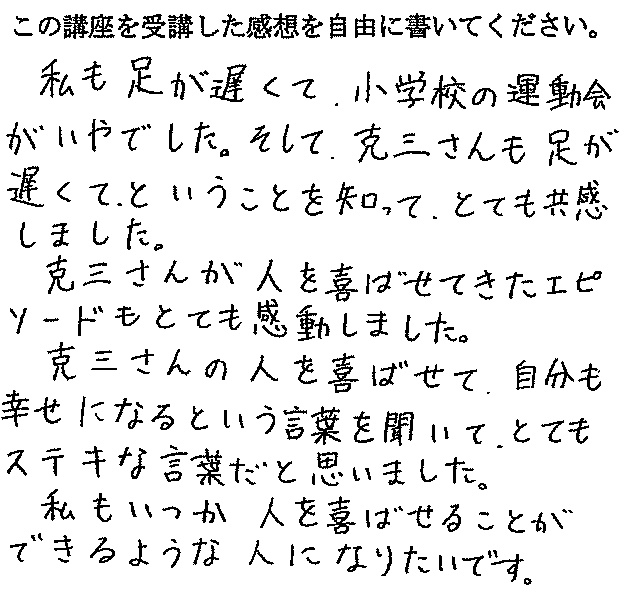 この講座を受講した感想を自由に書いてください。
私も足が遅くて、小学校の運動会
がいやでした。そして、克三さんも足が
遅くて、ということを知って、とても共感
しました。
克三さんが人を喜ばせてきたエピ
ソードもとても感動しました。
克三さんの人を喜ばせて、自分も
幸せになるという言葉を聞いて、とても
ステキな言葉だと思いました。
私もいつか人を喜ばせることが
できるような人になりたいです。